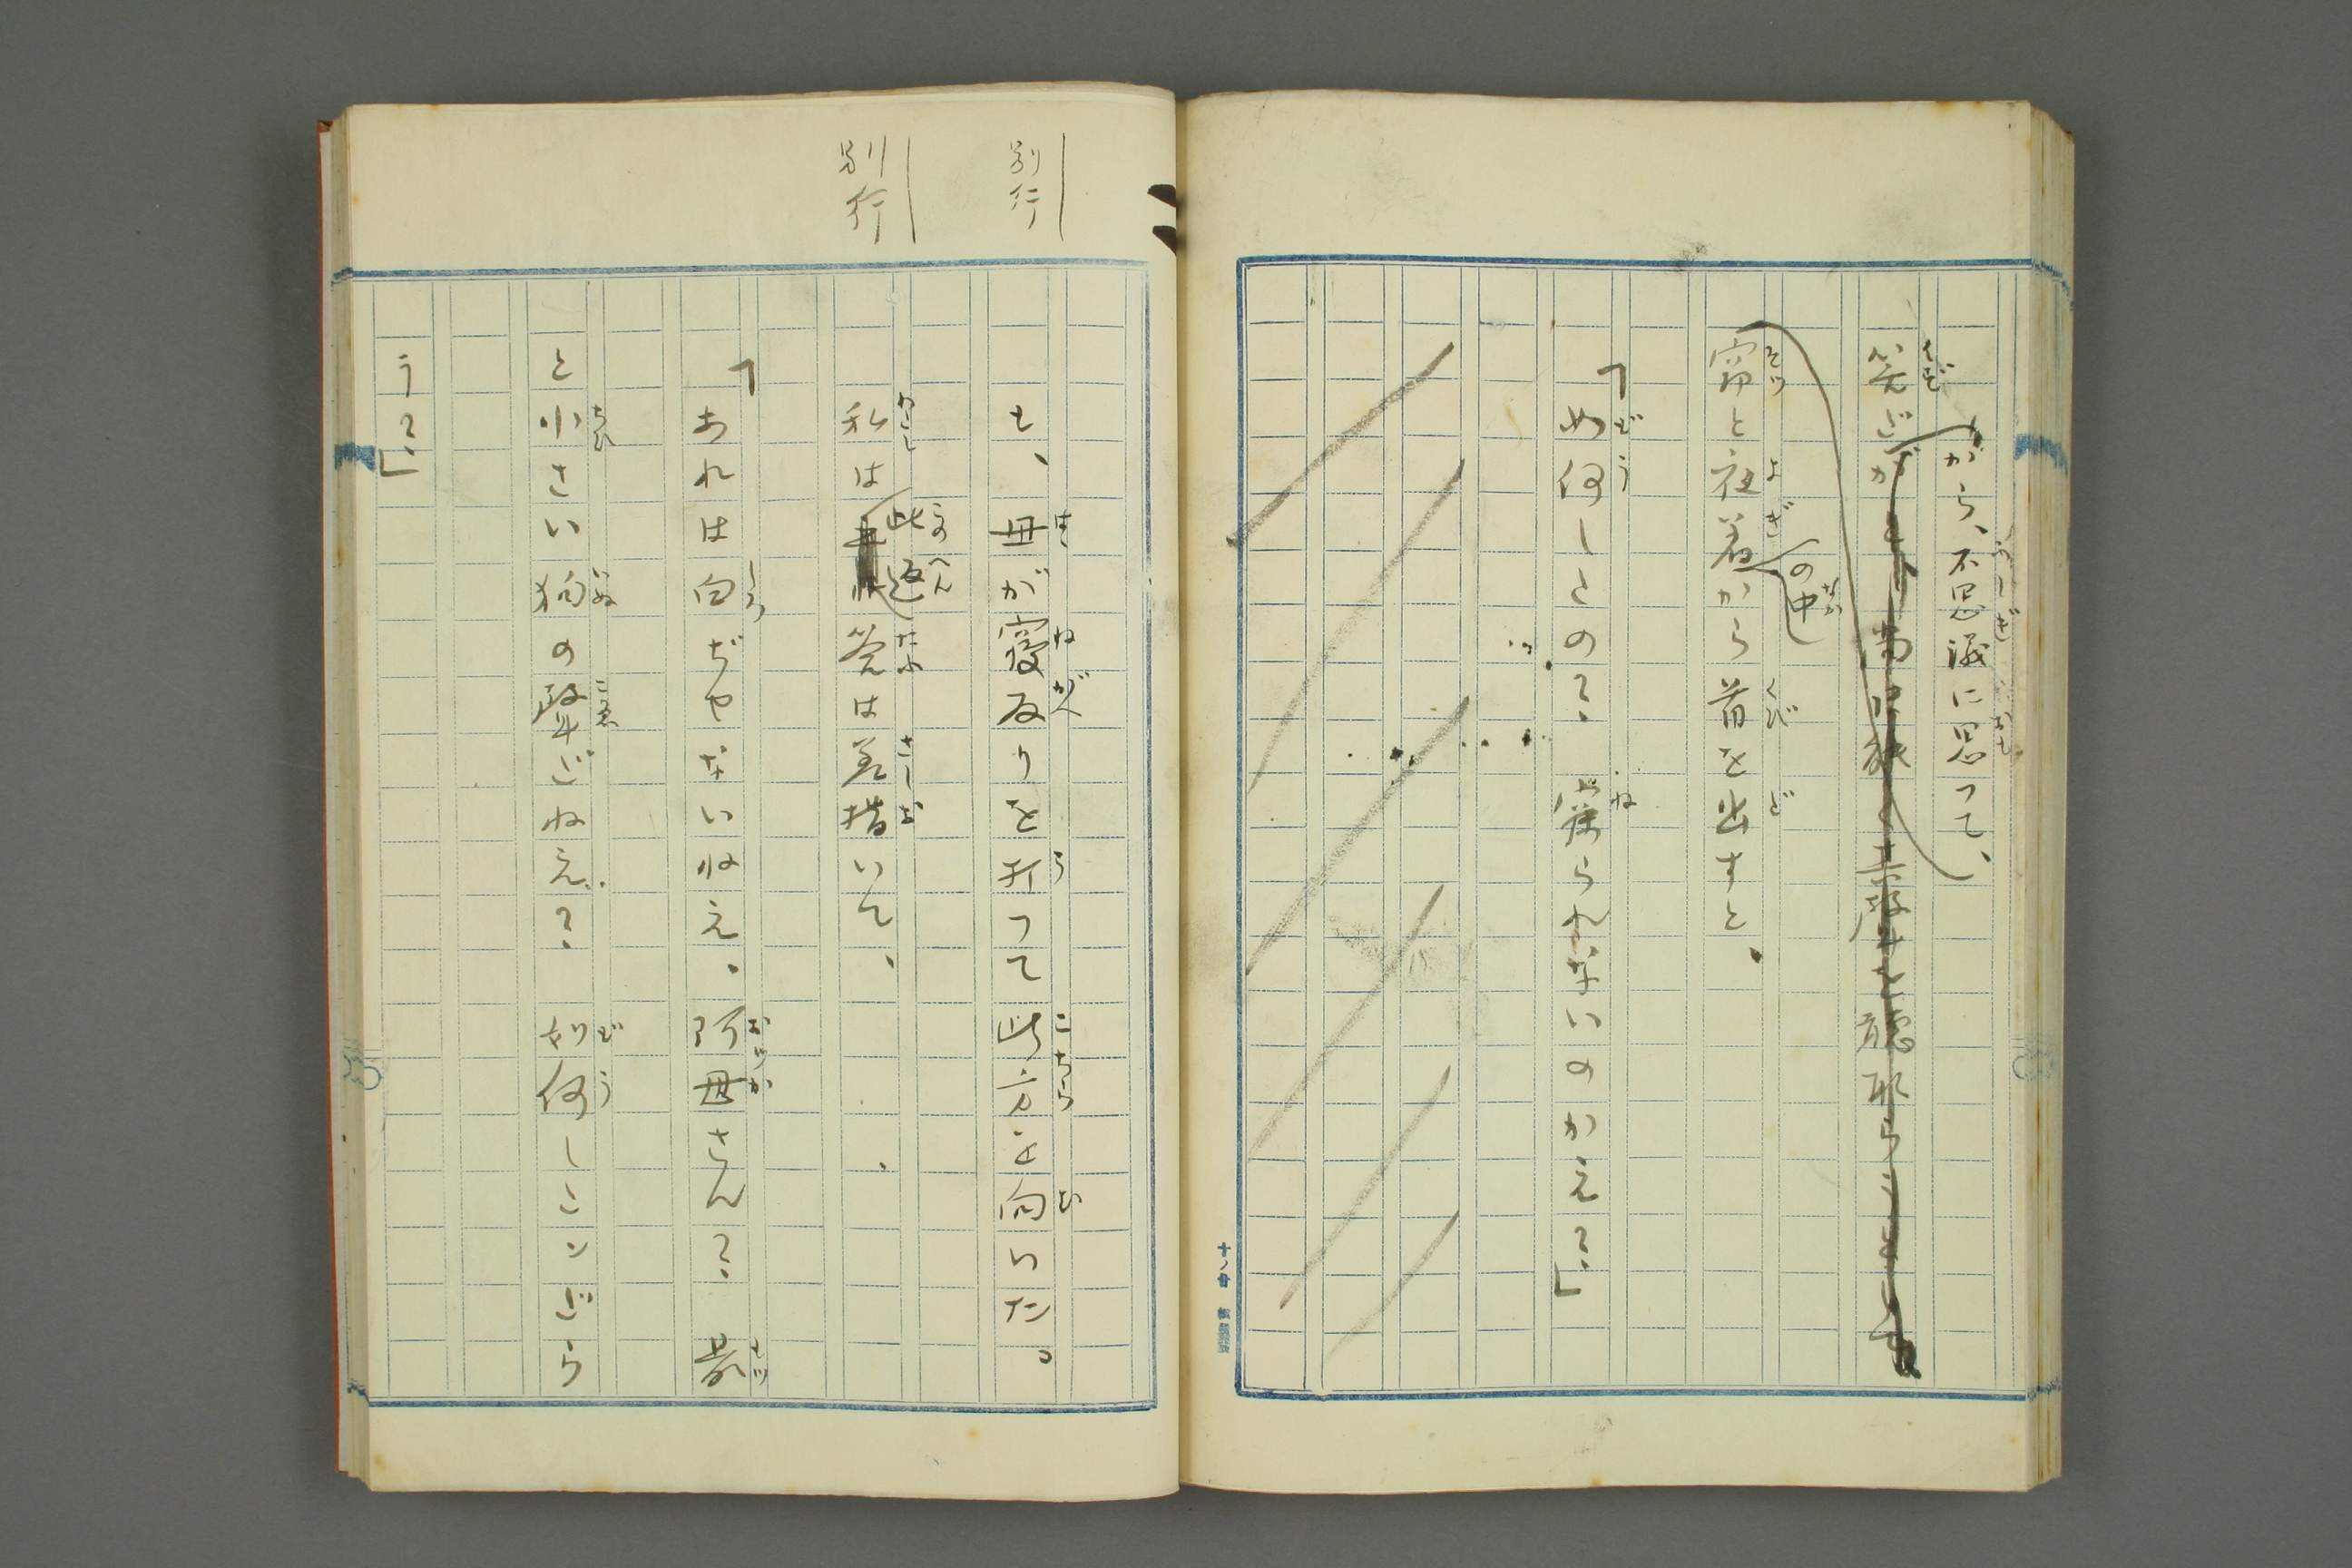 がら、不思議に思つて、
窃と夜着の中から首を出すと、
「如何したの？　寐られないのかえ？」
別行
と、母が寝反りを打つて此方を向いた。
別行
私は此返答は差措いて、
「あれは白ぢやないねえ、阿母さん？　最
と小さい狗の聲だねえ？　如何したンだら
う？」